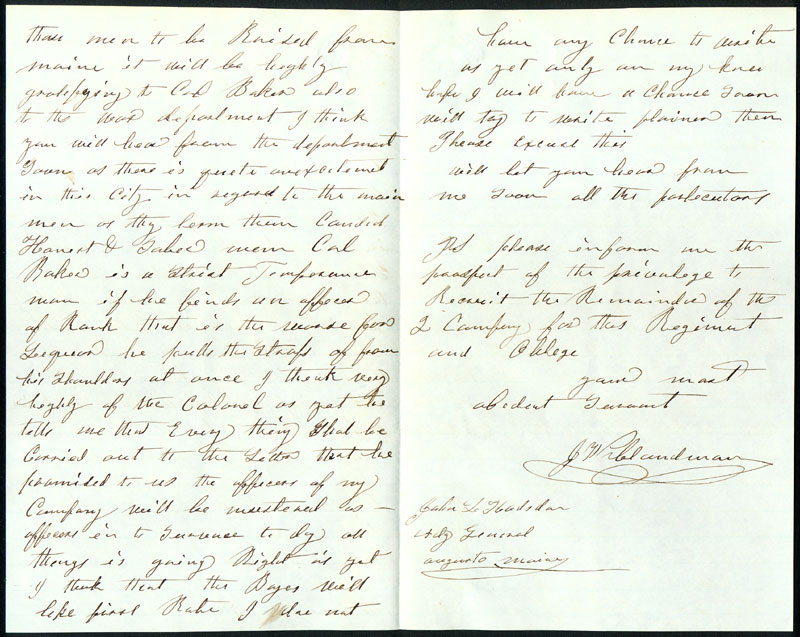 those men to be Raised from
maine it will be highly
gratefying to Col Baker also
to the war department I think
you will hear from the department
Soon as there is quite an excitement
in this City in regard to the main
men as thy term them Candid
Honest & Sober men Col
Baker is a Strict Temperance
man if he finds an officer
of Rank that is the worse for
Lequor he pulls the Straps of from
his Shoulders at once I think very
highly of the Colonel as yet he
tells me that Every thing Shal be
Carried out to the Letter that he
promised to us the officers of my
Company will be mustered as
officers in to Survice to dy all
things is going Right as yet
I think that the Boyes will
like first Rate I have not
have any Chance to write
as yet only on my knee
hope I will have a Chance Soon
will try to write plainer then
Please Excuse this
will let you hear from
me Soon all the particulars
Pst please inform me the
prospect of the privalege to
Recruit the Remainder of the
2 Company for this Regiment
and Oblege
your most
obedent Servant
John L Hodsdon
Adg General
augusta maine